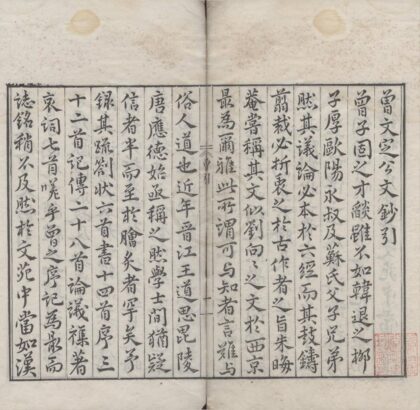 曾文定公文鈔引
曾子固之才燄雖不如韓退之柳
子厚歐陽永叔及蘇氏父子兄弟
然其議論必本於六經而其鼓鑄
翦裁必折衷之於古作者之旨朱晦
菴嘗稱其文似劉向〻之文於西京
最為爾雅此所謂可与知者言難与
俗人道也近年晉江王道思毘陵
唐應德始亟稱之然學士間猶疑
信者半而至於膾炙者罕矣予
錄其疏劄狀六首書十四首序三
十二首記傳二十八首論議襍著
哀詞七首嗟乎曾之序記為最而
誌銘稍不及然於文苑中當如漢